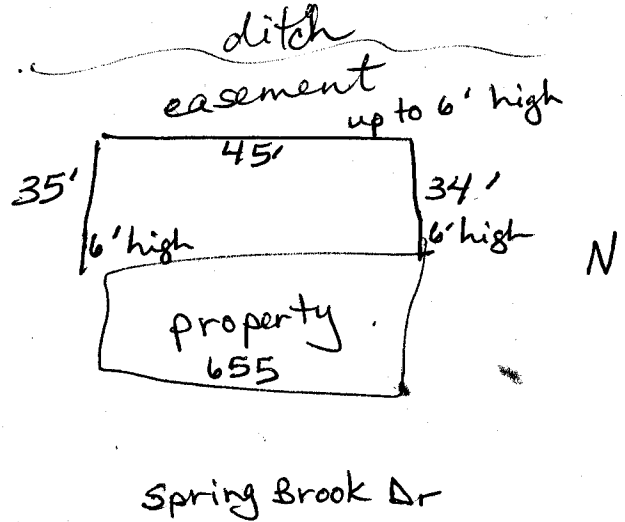 ditch
easement
up to 6' high
45'
35'
34'
6' high
6' high
N
property
655
Spring Brook Dr